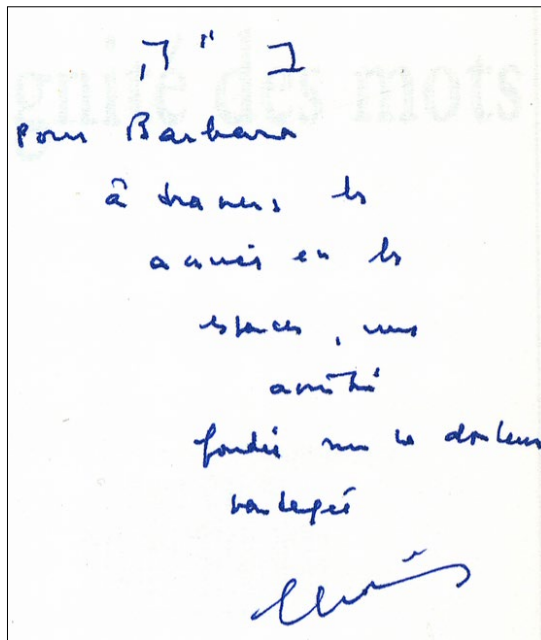 ב"ה
gnité des mots
Pour Barbara
à travers les
années et les
espaces, une
amitié
fondée sur la douleur
partagée